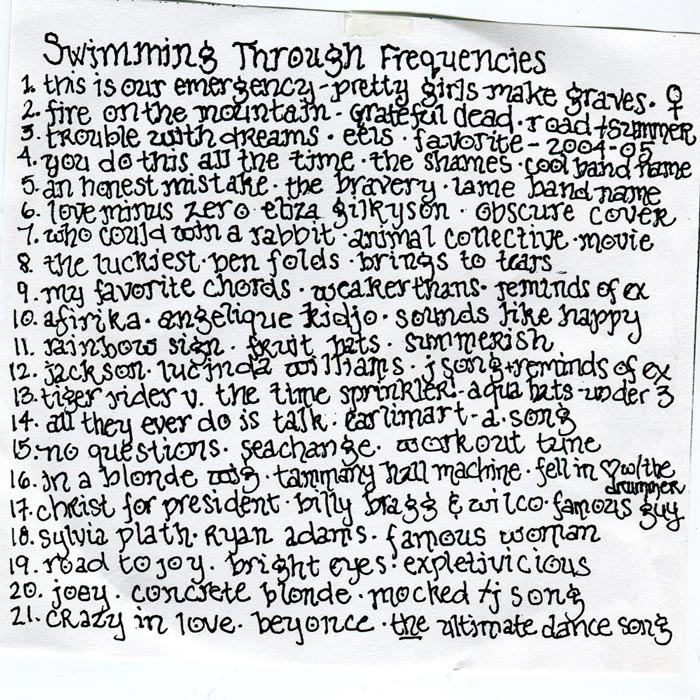 Swimming Through Frequencies
1. this is our emergency - pretty girls make graves. ♀
2. fire on the mountain - grateful dead. road + summer
3. trouble with dreams. eels. favorite - 2004-05
4. you do this all the time. the shames. cool band name
5. an honest mistake. the bravery. lame band name
6. love minus zero. eliza gilkyson. obscure cover
7. who could win a rabbit. animal collective. movie
8. the luckiest. ben folds. brings to tears
9. my favorite chords. weakerthans. reminds of ex
10. afirika. angelique kidjo. sounds like happy
11. rainbow sign. fruit bats. summerish
12. jackson. lucinda williams. j song + reminds of ex
13. tiger rider v. the time sprinkler. aqua bats - under 3
14. all they ever do is talk. earlimart - a. song
15. no questions. seachange. workout tune
16. in a blonde wig. tammany hall machine. fell in ♡ w/the drummer
17. christ for president. billy bragg & wilco. famous guy
18. sylvia plath. ryan adams. famous woman
19. road to joy. bright eyes. expletivicious
20. joey. concrete blonde. mocked + j song
21. crazy in love. beyonce. the ultimate dance song